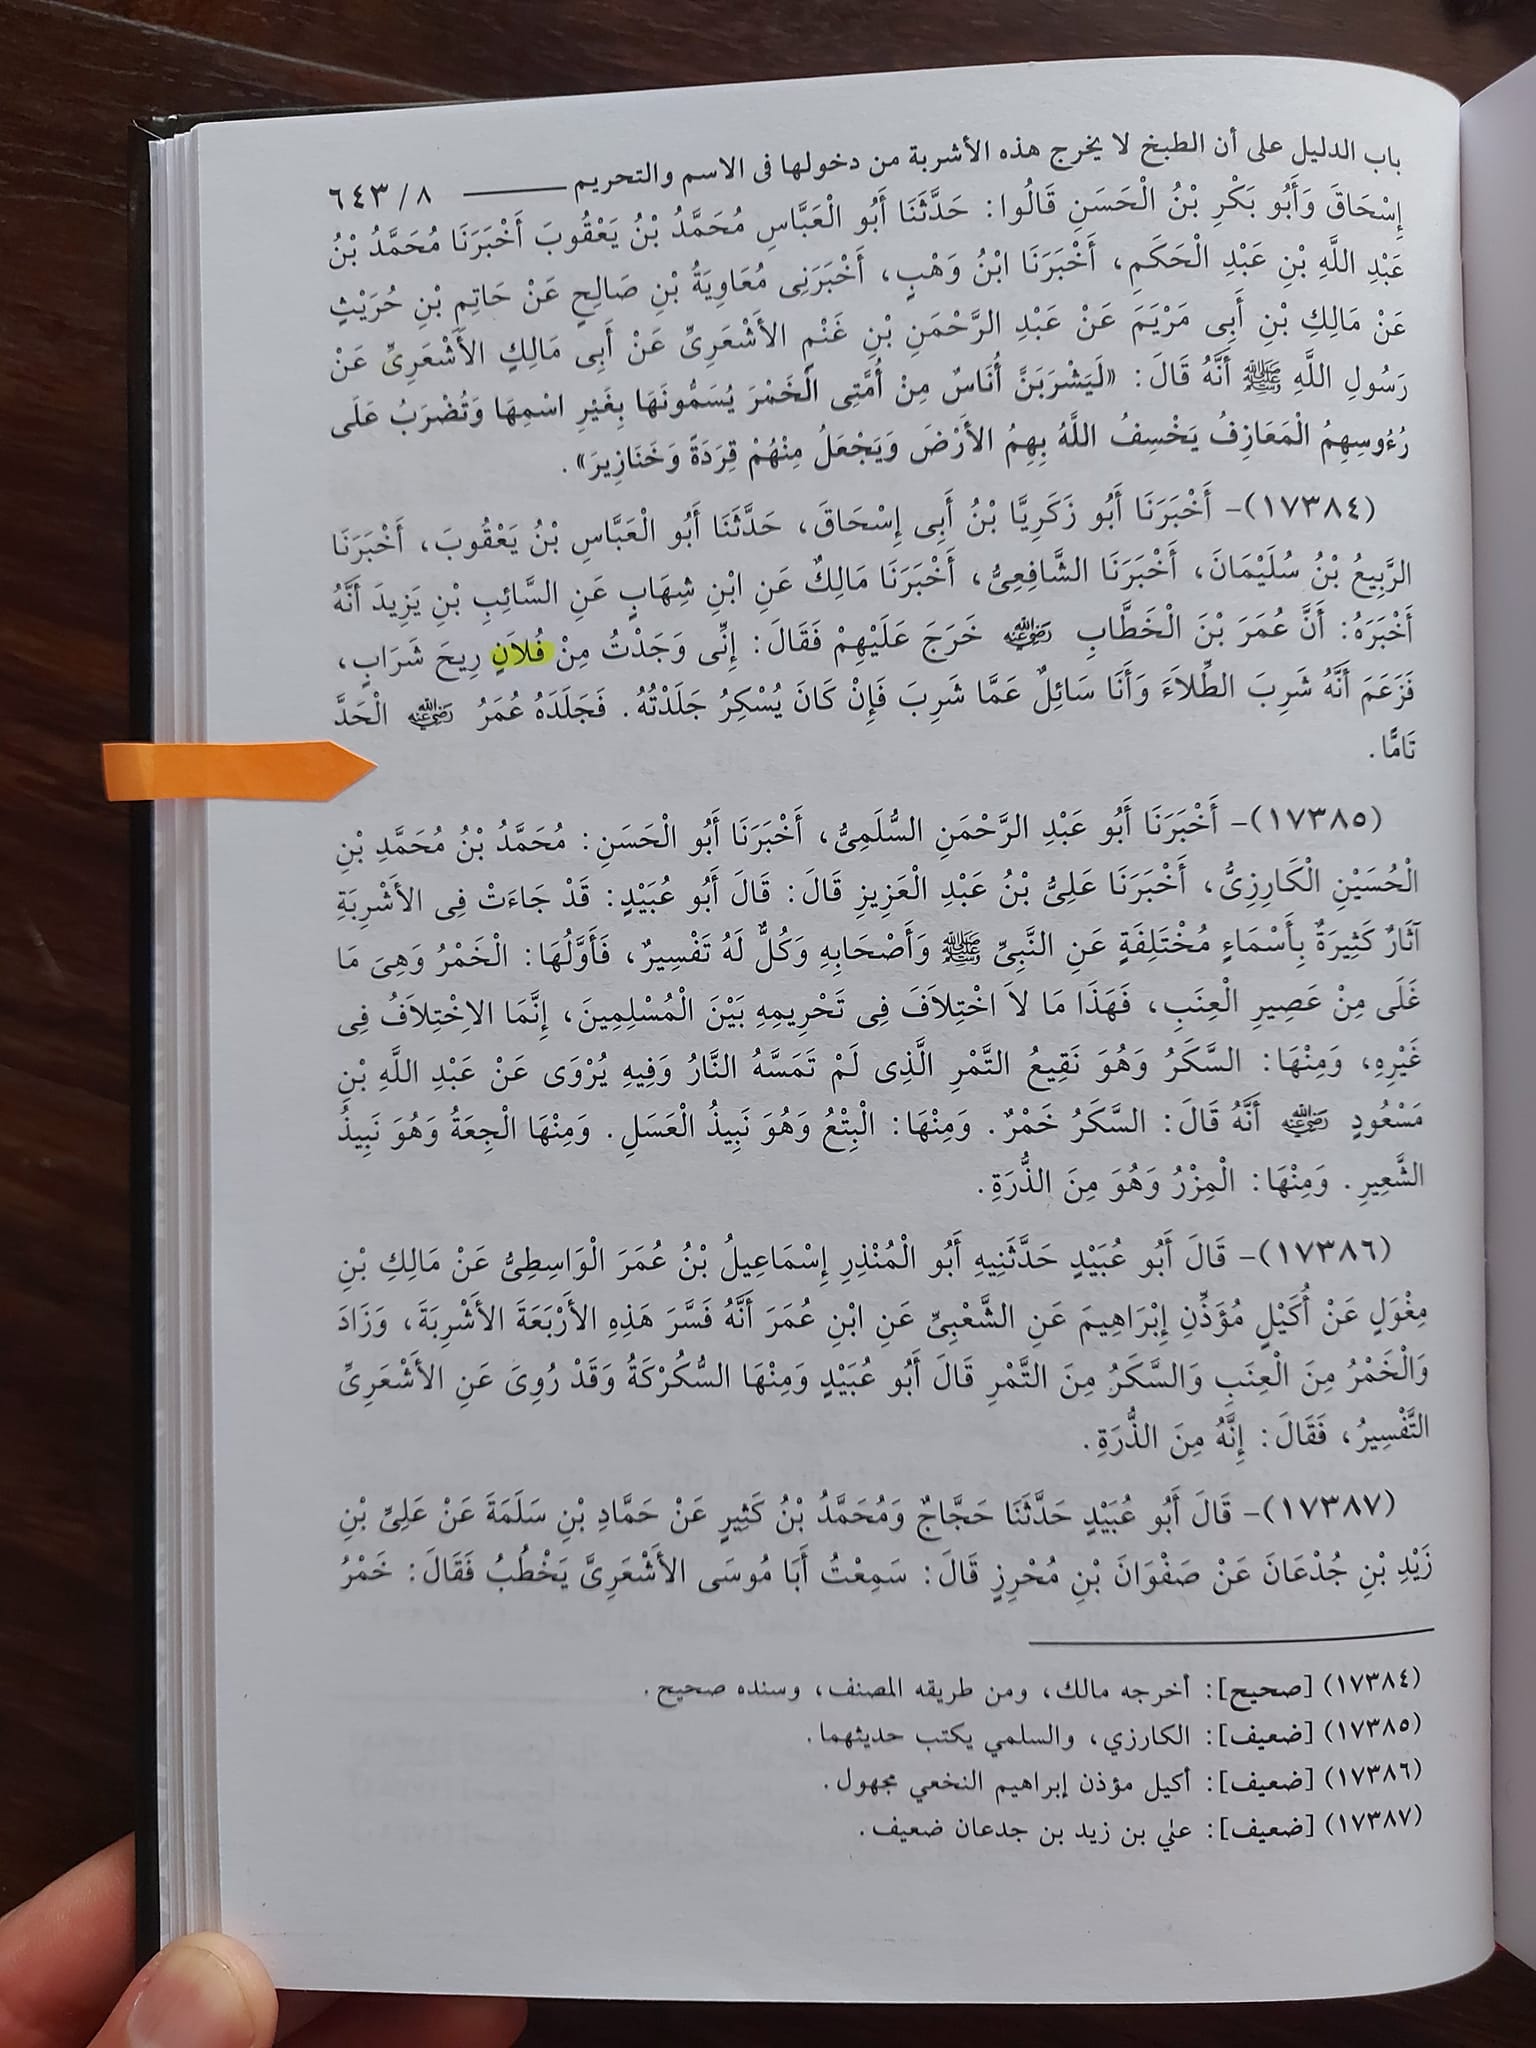 باب الدليل على أن الطبخ لا يخرج هذه الأشربة من دخولها فى الاسم والتحريم ــــــــ ٨/ ٦٤٣
إِسْحَاقَ وَأَبُو بَكْرِ بْنُ الْحَسَنِ قَالُوا: حَدَّثَنَا أَبُو الْعَبَّاسِ مُحَمَّدُ بْنُ يَعْقُوبَ أَخْبَرَنَا مُحَمَّدُ بْنُ
عَبْدِ اللَّهِ بْنِ عَبْدِ الْحَكَمِ، أَخْبَرَنَا ابْنُ وَهْبٍ، أَخْبَرَنِى مُعَاوِيَةُ بْنِ صَالِحٍ عَنْ حَاتِمِ بْنِ حُرَيْثٍ
عَنْ مَالِكِ بْنِ أَبِى مَرْيَمَ عَنْ عَبْدِ الرَّحْمَنِ بْنِ غَنْمٍ الأَشْعَرِىِّ عَنْ أَبِى مَالِكٍ الأَشْعَرِىِّ عَنْ
رَسُولِ اللَّهِ ﷺ أَنَّهُ قَالَ: «لَيَشْرَبَنَّ أُنَاسٌ مِنْ أُمَّتِى الْخَمْرَ يُسَمُّونَهَا بِغَيْرِ اسْمِهَا وَتُضْرَبُ عَلَى
رُءُوسِهِمُ الْمَعَازِفُ يَخْسِفُ اللَّهُ بِهِمُ الأَرْضَ وَيَجْعَلُ مِنْهُمْ قِرَدَةً وَخَنَازِيرَ».
(١٧٣٨٤)- أَخْبَرَنَا أَبُو زَكَرِيَّا بْنُ أَبِى إِسْحَاقَ، حَدَّثَنَا أَبُو الْعَبَّاسِ بْنُ يَعْقُوبَ، أَخْبَرَنَا
الرَّبِيعُ بْنُ سُلَيْمَانَ، أَخْبَرَنَا الشَّافِعِىُّ، أَخْبَرَنَا مَالِكٌ عَنِ ابْنِ شِهَابٍ عَنِ السَّائِبِ بْنِ يَزِيدَ أَنَّهُ
أَخْبَرَهُ: أَنَّ عُمَرَ بْنَ الْخَطَّابِ رضي الله عنه خَرَجَ عَلَيْهِمْ فَقَالَ: إِنِّى وَجَدْتُ مِنْ فُلاَنٍ رِيحَ شَرَابٍ،
فَزَعَمَ أَنَّهُ شَرِبَ الطِّلاَءَ وَأَنَا سَائِلٌ عَمَّا شَرِبَ فَإِنْ كَانَ يُسْكِرُ جَلَدْتُهُ. فَجَلَدَهُ عُمَرُ رضي الله عنه الْحَدَّ
تَامًّا.
(١٧٣٨٥)- أَخْبَرَنَا أَبُو عَبْدِ الرَّحْمَنِ السُّلَمِىُّ، أَخْبَرَنَا أَبُو الْحَسَنِ: مُحَمَّدُ بْنُ مُحَمَّدِ بْنِ
الْحُسَيْنِ الْكَارِزِىُّ، أَخْبَرَنَا عَلِىُّ بْنُ عَبْدِ الْعَزِيزِ قَالَ: قَالَ أَبُو عُبَيْدٍ: قَدْ جَاءَتْ فِى الأَشْرِبَةِ
آثَارٌ كَثِيرَةٌ بِأَسْمَاءٍ مُخْتَلِفَةٍ عَنِ النَّبِىِّ ﷺ وَأَصْحَابِهِ وَكُلٌّ لَهُ تَفْسِيرٌ، فَأَوَّلُهَا: الْخَمْرُ وَهِىَ مَا
غَلَى مِنْ عَصِيرِ الْعِنَبِ، فَهَذَا مَا لاَ اخْتِلاَفَ فِى تَحْرِيمِهِ بَيْنَ الْمُسْلِمِينَ، إِنَّمَا الاِخْتِلاَفُ فِى
غَيْرِهِ، وَمِنْهَا: السَّكَرُ وَهُوَ نَقِيعُ التَّمْرِ الَّذِى لَمْ تَمَسَّهُ النَّارُ وَفِيهِ يُرْوَى عَنْ عَبْدِ اللَّهِ بْنِ
مَسْعُودٍ رضي الله عنه أَنَّهُ قَالَ: السَّكَرُ خَمْرٌ. وَمِنْهَا: الْبِتْعُ وَهُوَ نَبِيذُ الْعَسَلِ. وَمِنْهَا الْجِعَةُ وَهُوَ نَبِيذُ
الشَّعِيرِ. وَمِنْهَا: الْمِزْرُ وَهُوَ مِنَ الذُّرَةِ.
(١٧٣٨٦)- قَالَ أَبُو عُبَيْدٍ حَدَّثَنِيهِ أَبُو الْمُنْذِرِ إِسْمَاعِيلُ بْنُ عُمَرَ الْوَاسِطِىُّ عَنْ مَالِكِ بْنِ
مِغْوَلٍ عَنْ أُكَيْلٍ مُؤَذِّنِ إِبْرَاهِيمَ عَنِ الشَّعْبِىِّ عَنِ ابْنِ عُمَرَ أَنَّهُ فَسَّرَ هَذِهِ الأَرْبَعَةَ الأَشْرِبَةَ، وَزَادَ
وَالْخَمْرُ مِنَ الْعِنَبِ وَالسَّكَرُ مِنَ التَّمْرِ قَالَ أَبُو عُبَيْدٍ وَمِنْهَا السُّكُرْكَةُ وَقَدْ رُوِىَ عَنِ الأَشْعَرِىِّ
التَّفْسِيرُ، فَقَالَ: إِنَّهُ مِنَ الذُّرَةِ.
(١٧٣٨٧)- قَالَ أَبُو عُبَيْدٍ حَدَّثَنَا حَجَّاجٌ وَمُحَمَّدُ بْنُ كَثِيرٍ عَنْ حَمَّادِ بْنِ سَلَمَةَ عَنْ عَلِىِّ بْنِ
زَيْدِ بْنِ جُدْعَانَ عَنْ صَفْوَانَ بْنِ مُحْرِزٍ قَالَ: سَمِعْتُ أَبَا مُوسَى الأَشْعَرِىَّ يَخْطُبُ فَقَالَ: خَمْرُ
(١٧٣٨٤) [صحيح]: أخرجه مالك، ومن طريقه المصنف، وسنده صحيح.
(١٧٣٨٥) [ضعيف]: الكارزي، والسلمي يكتب حديثهما.
(١٧٣٨٦) [ضعيف]: أكيل مؤذن إبراهيم النخعي مجهول.
(١٧٣٨٧) [ضعيف]: علي بن زيد بن جدعان ضعيف.